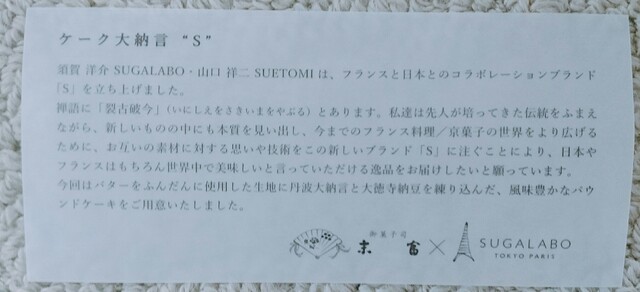 ケーク大納言 “S”
須賀 洋介 SUGALABO・山口 祥二 SUETOMI は、フランスと日本とのコラボレーションブランド
「S」を立ち上げました。
禅語に「裂古破今」(いにしえをさきいまをやぶる)とあります。私達は先人が培ってきた伝統をふまえ
ながら、新しいものの中にも本質を見い出し、今までのフランス料理／京菓子の世界をより広げる
ために、お互いの素材に対する思いや技術をこの新しいブランド「S」に注ぐことにより、日本や
フランスはもちろん世界中で美味しいと言っていただける逸品をお届けしたいと願っています。
今回はバターをふんだんに使用した生地に丹波大納言と大徳寺納豆を練り込んだ、風味豊かなパウ
ンドケーキをご用意いたしました。
御菓子司
末富 × SUGALABO
TOKYO PARIS